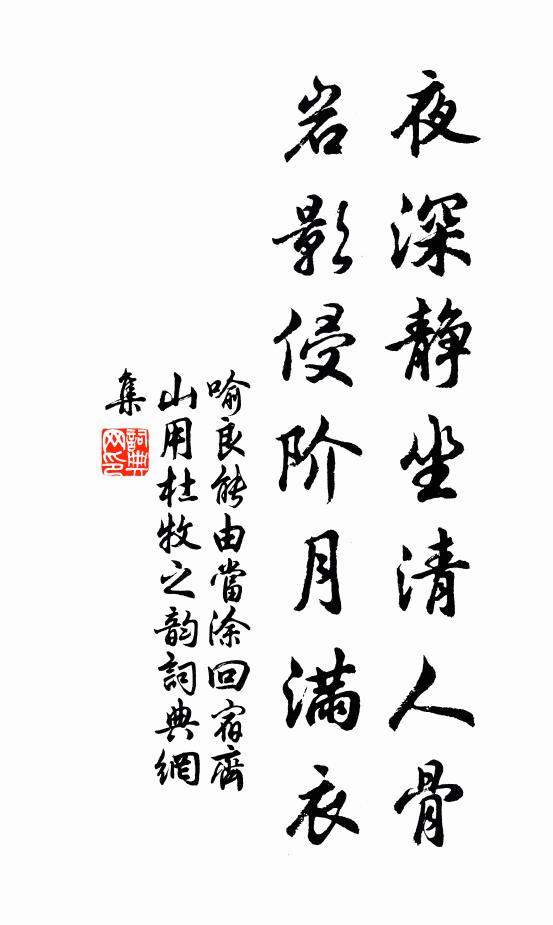 夜深静坐清人骨
岩影侵阶月满衣
喻良能由當涂回宿齊
山用杜牧之韵詞典網
集
詞典網印